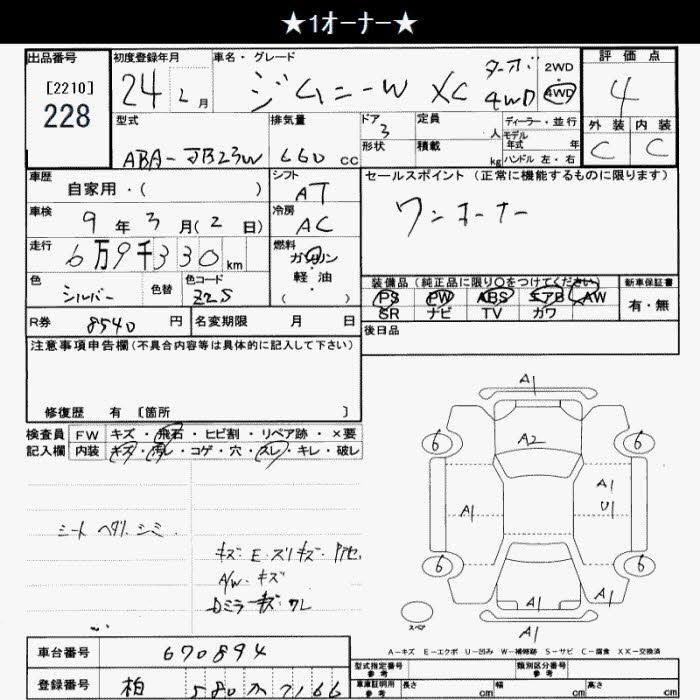 ★1オーナー★
出品番号 初度登録年月 車名・グレード 評価点
[2210]
228
24年 2月 ジムニーW XC ターボ 4WD 2WD・4WD 4
型式 排気量 ドア 定員 ディーラー・並行 外装 内装
ABA-JB23W 660cc 3 人 モデル年式 年 C C
形状 積載 kg ハンドル 左・右
車歴 シフト セールスポイント(正常に機能するものに限ります)
自家用・( ) AT ワンオーナー
車検 9年 3月(2日) 冷房 AC
走行 6万9千330km 燃料 ガソリン・軽油( )
色 シルバー 色替 色コード Z2S
装備品(純正品に限り○をつけてください) 新車保証書
PS PW ABS エアB AW 有・無
SR ナビ TV カワ
R券 8540円 名変期限 月 日
後日品
注意事項申告欄(不具合内容等は具体的に記入して下さい)
修復歴 有 [箇所 ]
検査員 FW キズ・飛石・ヒビ割・リペア跡・×要
記入欄 内装 キズ・汚レ・コゲ・穴・スレ・キレ・破レ
シート ヘタリ.シミ
キズ・E・スリキズ・
A/W・キズ
Dミラーキズ・ワレ
A1
6 A2 6
A1 A1
U1
6 6
A1 A1
スペア A1
A-キズ E-エクボ U-凹み W-補修跡 S-サビ C-腐食 XX-交換済
車台番号 670894
登録番号 柏 580 7166
型式指定番号 参考 類別区分番号 参考
車庫証明用 参考 長さ cm 幅 cm 高さ cm